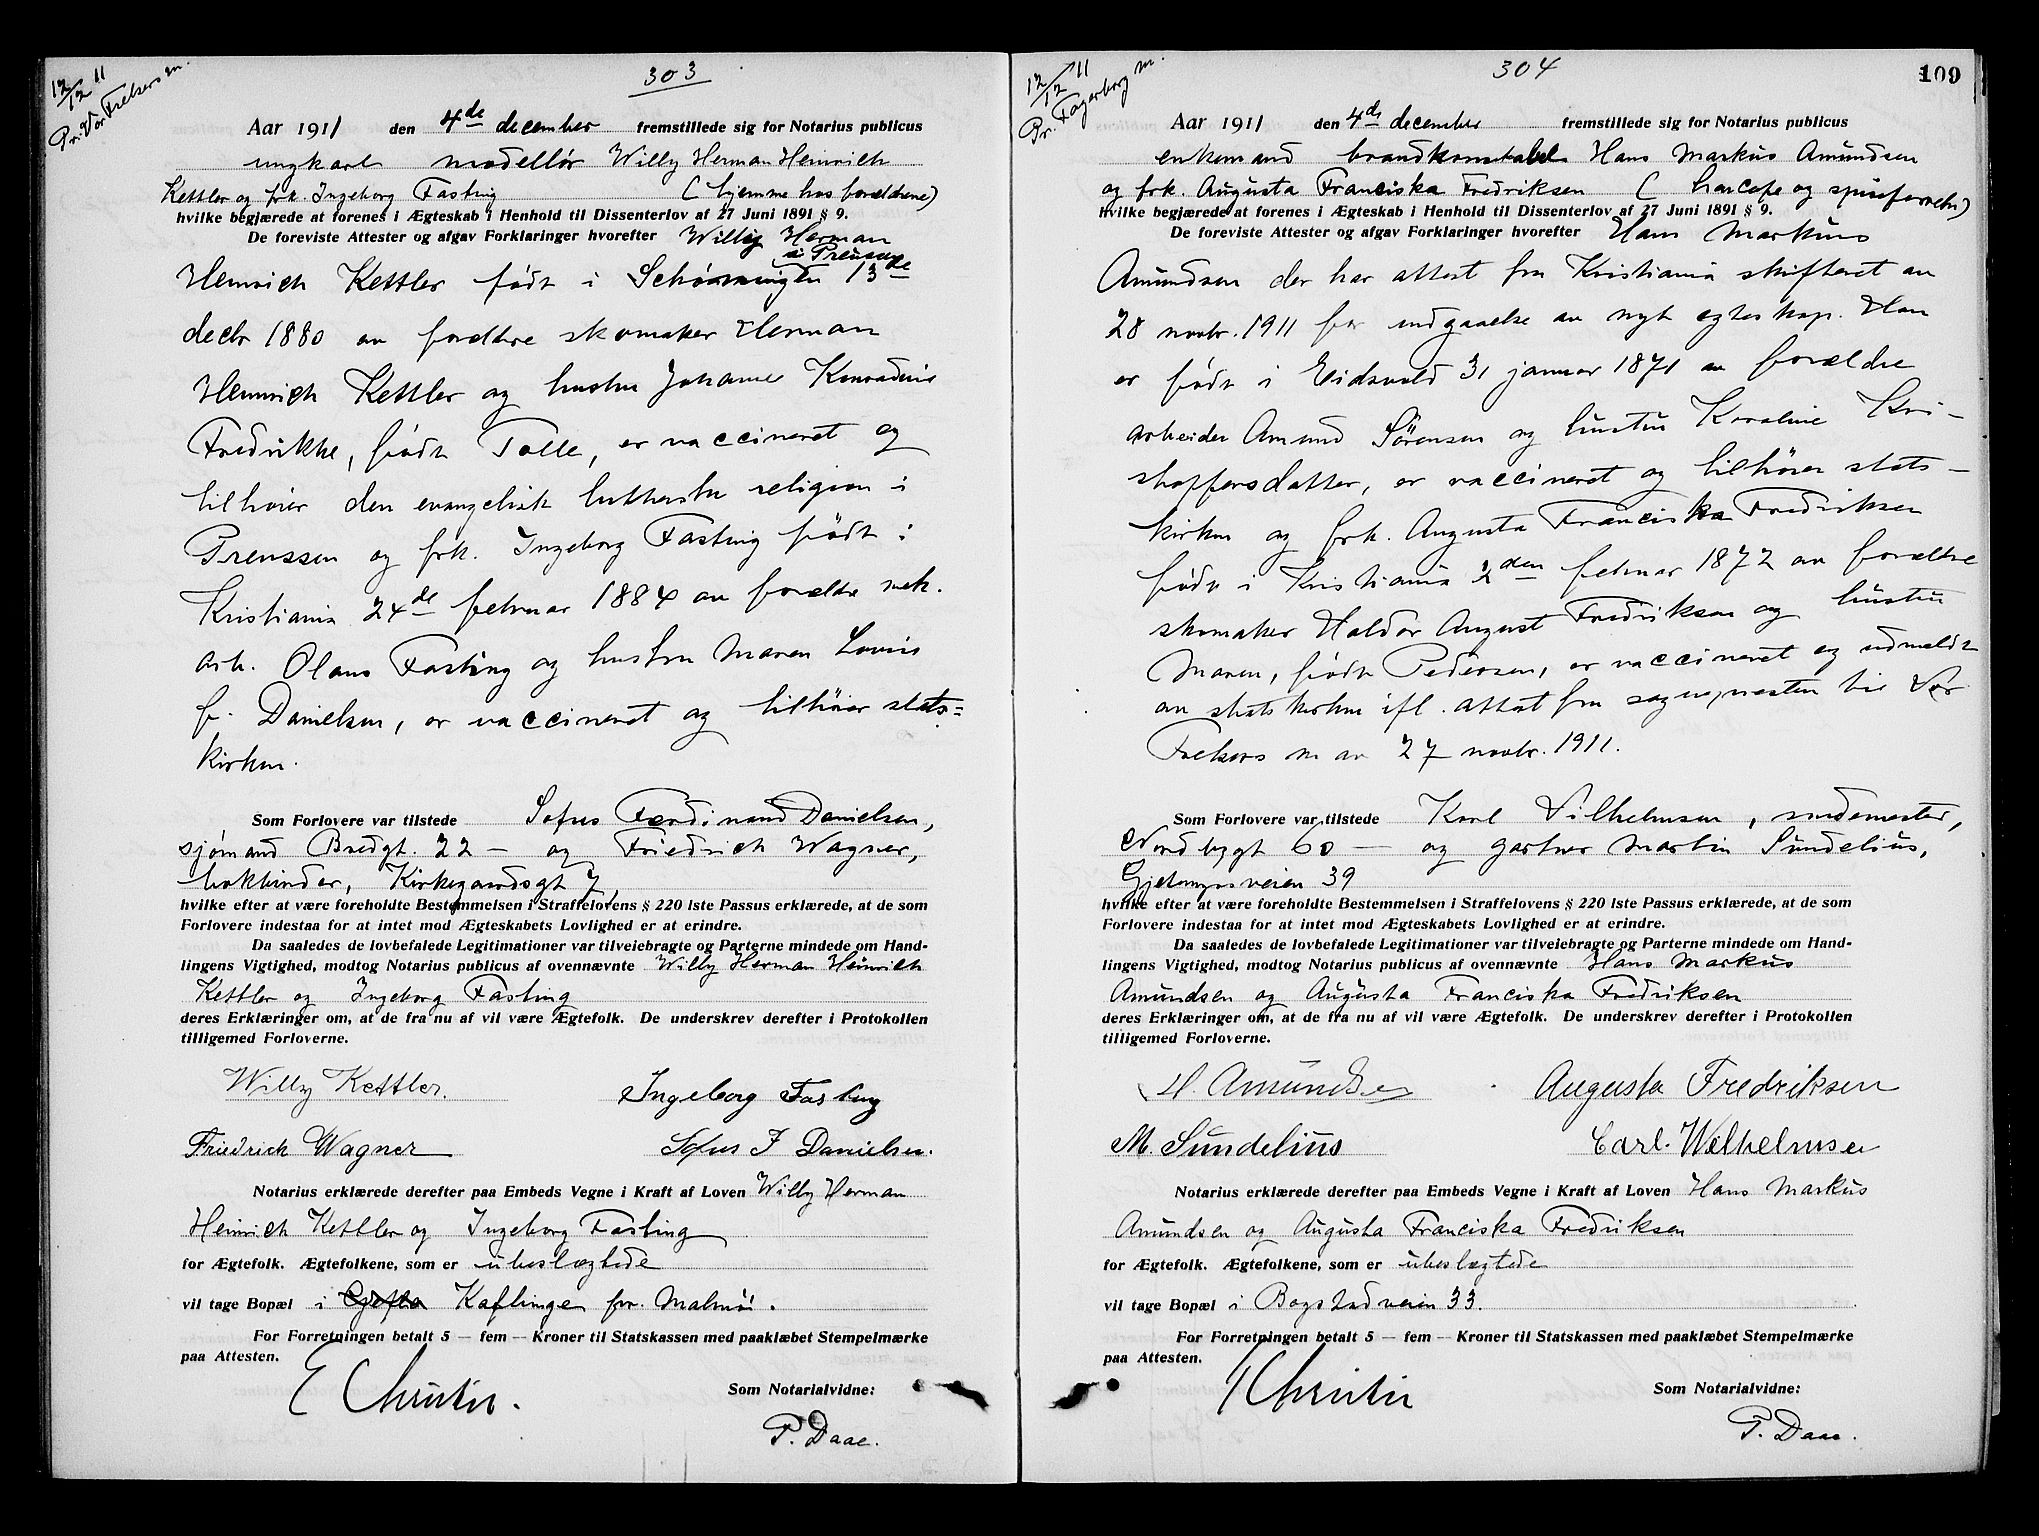 12/12 11
Pr. Vor Frelsers m.
303
Aar 1911 den 4de december fremstillede sig for Notarius publicus
ungkarl modellør Willy Herman Heinrich
Kettler og frk. Ingeborg Fasting (hjemme hos forældrene)
hvilke begjærede at forenes i Ægteskab i Henhold til Dissenterlov af 27 Juni 1891 § 9.
De foreviste Attester og afgav Forklaringer hvorefter Willy Herman
i Preussen
Heinrich Kettler født i Schöningen 13de
decbr 1880 av forældre skomaker Herman
Heinrich Kettler og hustru Johanne
Fredrikke, født Tolle, er vaccineret og
tilhører den evangelisk lutherske religion i
Preussen og frk. Ingeborg Fasting født i
Kristiania 24de februar 1884 av forældre mek.
arb. Olaus Fasting og hustru Maren Lovise
f. Danielsen, er vaccineret og tilhører stats=
kirken.
Som Forlovere var tilstede Sofus Ferdinand Danielsen,
sjømand Bredgt. 22 — og Friedrich Wagner,
bokbinder, Kirkegaardsgt 7,
hvilke efter at være foreholdte Bestemmelsen i Straffelovens § 220 1ste Passus erklærede, at de som
Forlovere indestaa for at intet mod Ægteskabets Lovlighed er at erindre.
Da saaledes de lovbefalede Legitimationer var tilveiebragte og Parterne mindede om Hand-
lingens Vigtighed, modtog Notarius publicus af ovennævnte Willy Herman Heinrich
Kettler og Ingeborg Fasting
deres Erklæringer om, at de fra nu af vil være Ægtefolk. De underskrev derefter i Protokollen
tilligemed Forloverne.
Willy Kettler. Ingeborg Fasting
Friedrich Wagner Sofus F Danielsen.
Notarius erklærede derefter paa Embeds Vegne i Kraft af Loven Willy Herman
Heinrich Kettler og Ingeborg Fasting
for Ægtefolk. Ægtefolkene, som er ubeslægtede
vil tage Bopæl i Kaflinge pr. Malmö.
For Forretningen betalt 5 — fem — Kroner til Statskassen med paaklæbet Stempelmærke
paa Attesten.
E Christie.
Som Notarialvidne:
P. Daae.
12/12 11
Pr. Fagerborg m.
304
109
Aar 1911 den 4de december fremstillede sig for Notarius publicus
enkemand brandkonstabel Hans Markus Amundsen
og frk. Augusta Franciska Fredriksen ( har cafe og spiseforretn)
hvilke begjærede at forenes i Ægteskab i Henhold til Dissenterlov af 27 Juni 1891 § 9.
De foreviste Attester og afgav Forklaringer hvorefter Hans Markus
Amundsen der har attest fra Kristiania skifteret av
28 novbr. 1911 for indgaaelse av nyt egteskap. Han
er født i Eidsvold 31 januar 1871 av forældre
arbeider Amund Sörensen og hustru Karoline Kri-
stoffersdatter, er vaccineret og tilhører stats-
kirken og frk. Augusta Franciska Fredriksen
født i Kristiania 2den februar 1872 av forældre
skomaker Haldor August Fredriksen og hustru
Maren, født Pedersen, er vaccineret og udmeldt
av statskirken ifl. attest fra sognepresten til Vor
Frelsers m av 27 novbr. 1911.
Som Forlovere var tilstede Karl Vilhelmsen, smedemester,
Nordbygt 60 — og gartner Martin Sundelius,
Gjetemyrsveien 39
hvilke efter at være foreholdte Bestemmelsen i Straffelovens § 220 1ste Passus erklærede, at de som
Forlovere indestaa for at intet mod Ægteskabets Lovlighed er at erindre.
Da saaledes de lovbefalede Legitimationer var tilveiebragte og Parterne mindede om Hand-
lingens Vigtighed, modtog Notarius publicus af ovennævnte Hans Markus
Amundsen og Augusta Franciska Fredriksen
deres Erklæringer om, at de fra nu af vil være Ægtefolk. De underskrev derefter i Protokollen
tilligemed Forloverne.
H. Amundsen Augusta Fredriksen
M. Sundelius Carl. Wilhelmsen
Notarius erklærede derefter paa Embeds Vegne i Kraft af Loven Hans Markus
Amundsen og Augusta Franciska Fredriksen
for Ægtefolk. Ægtefolkene, som er ubeslægtede
vil tage Bopæl i Bogstadveien 33.
For Forretningen betalt 5 — fem — Kroner til Statskassen med paaklæbet Stempelmærke
paa Attesten.
E Christie
Som Notarialvidne:
P. Daae.